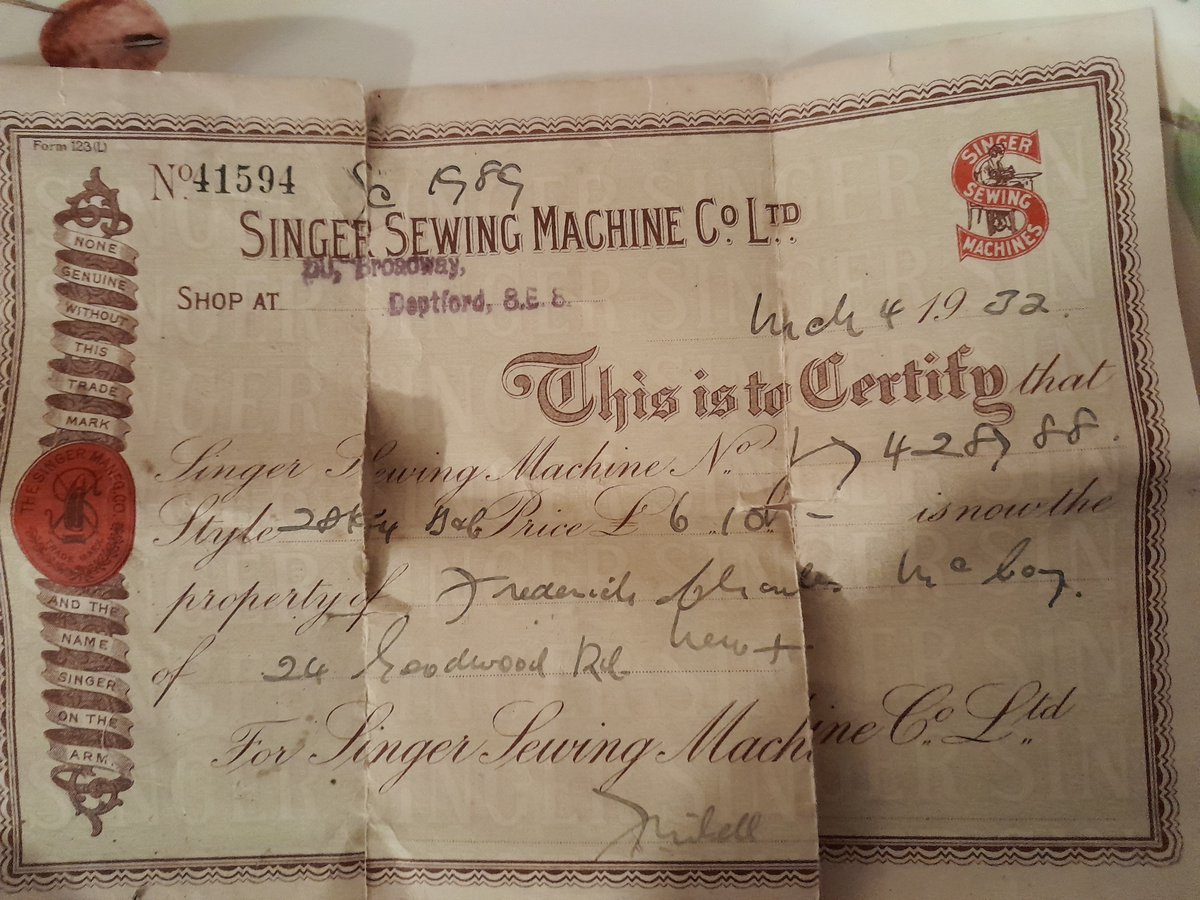 Form 123(L)
No 41594 1989
SINGER SEWING MACHINE Co. LTD.
SINGER
SEWING
MACHINES
Broadway,
SHOP AT Deptford, S.E. 8.
Mch 4 1932.
This is to Certify that
Singer Sewing Machine No. Y 7428788.
Style 28K Price £ 6. 10 - is now the
property of Frederick Charles McCoy.
of 24 Goodwood Rd New +
For Singer Sewing Machine Co. Ltd.
NONE
GENUINE
WITHOUT
THIS
TRADE
MARK
THE SINGER MANFG. CO.
AND THE
NAME
SINGER
ON THE
ARM.